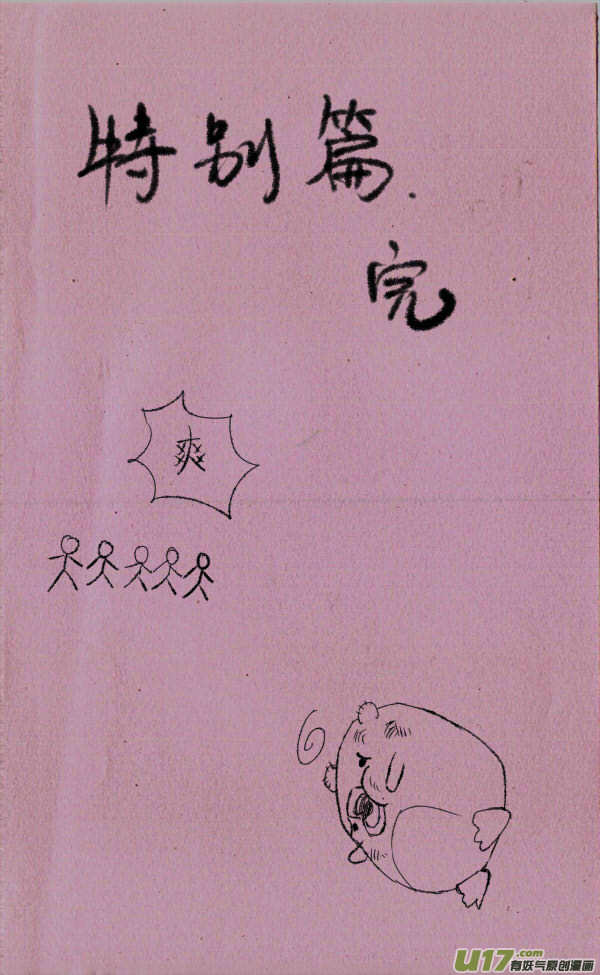 特别篇.
完
爽
U17.com
有妖气原创漫画